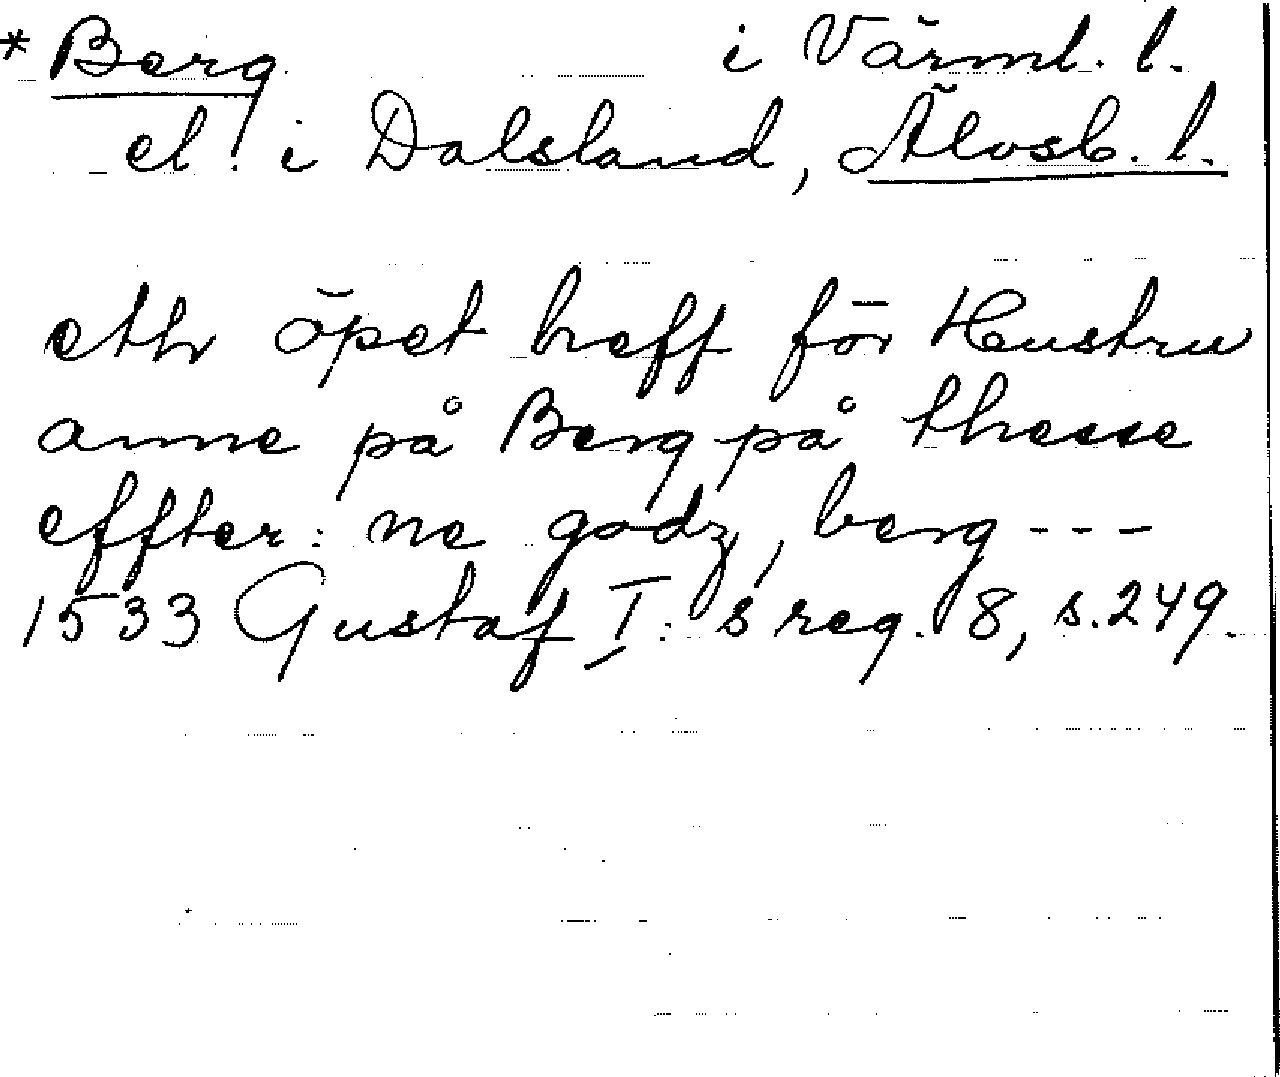 * Berg i Värml. l.
el. i Dalsland, Älvsb. l.
eth öpet breff för Hustru
anne på Berg på thesse
effter: ne godz, berg - - -
1533 Gustaf I: s reg. 8, s. 249.